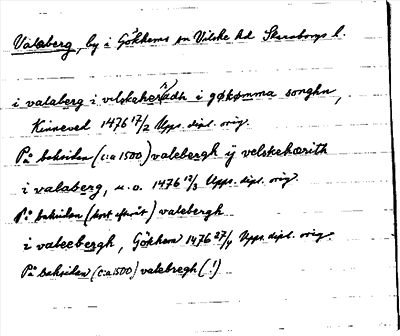 Valaberg, by i Gökhems sn Vilske hd Skaraborgs l.
i valaberg i vilskeheradh i gøkømma songhn,
Kinneved 1476 17/2 Upps. dipl. orig.
På baksidan (c:a 1500) valebergh ij velskehærith
i valaberg, u.o. 1476 12/3 Upps. dipl. orig.
På baksidan (kort efteråt) valabergh
i valeebergh, Gökhem 1476 27/4 Upps. dipl. orig.
På baksidan (c:a 1500) valebregh (!)